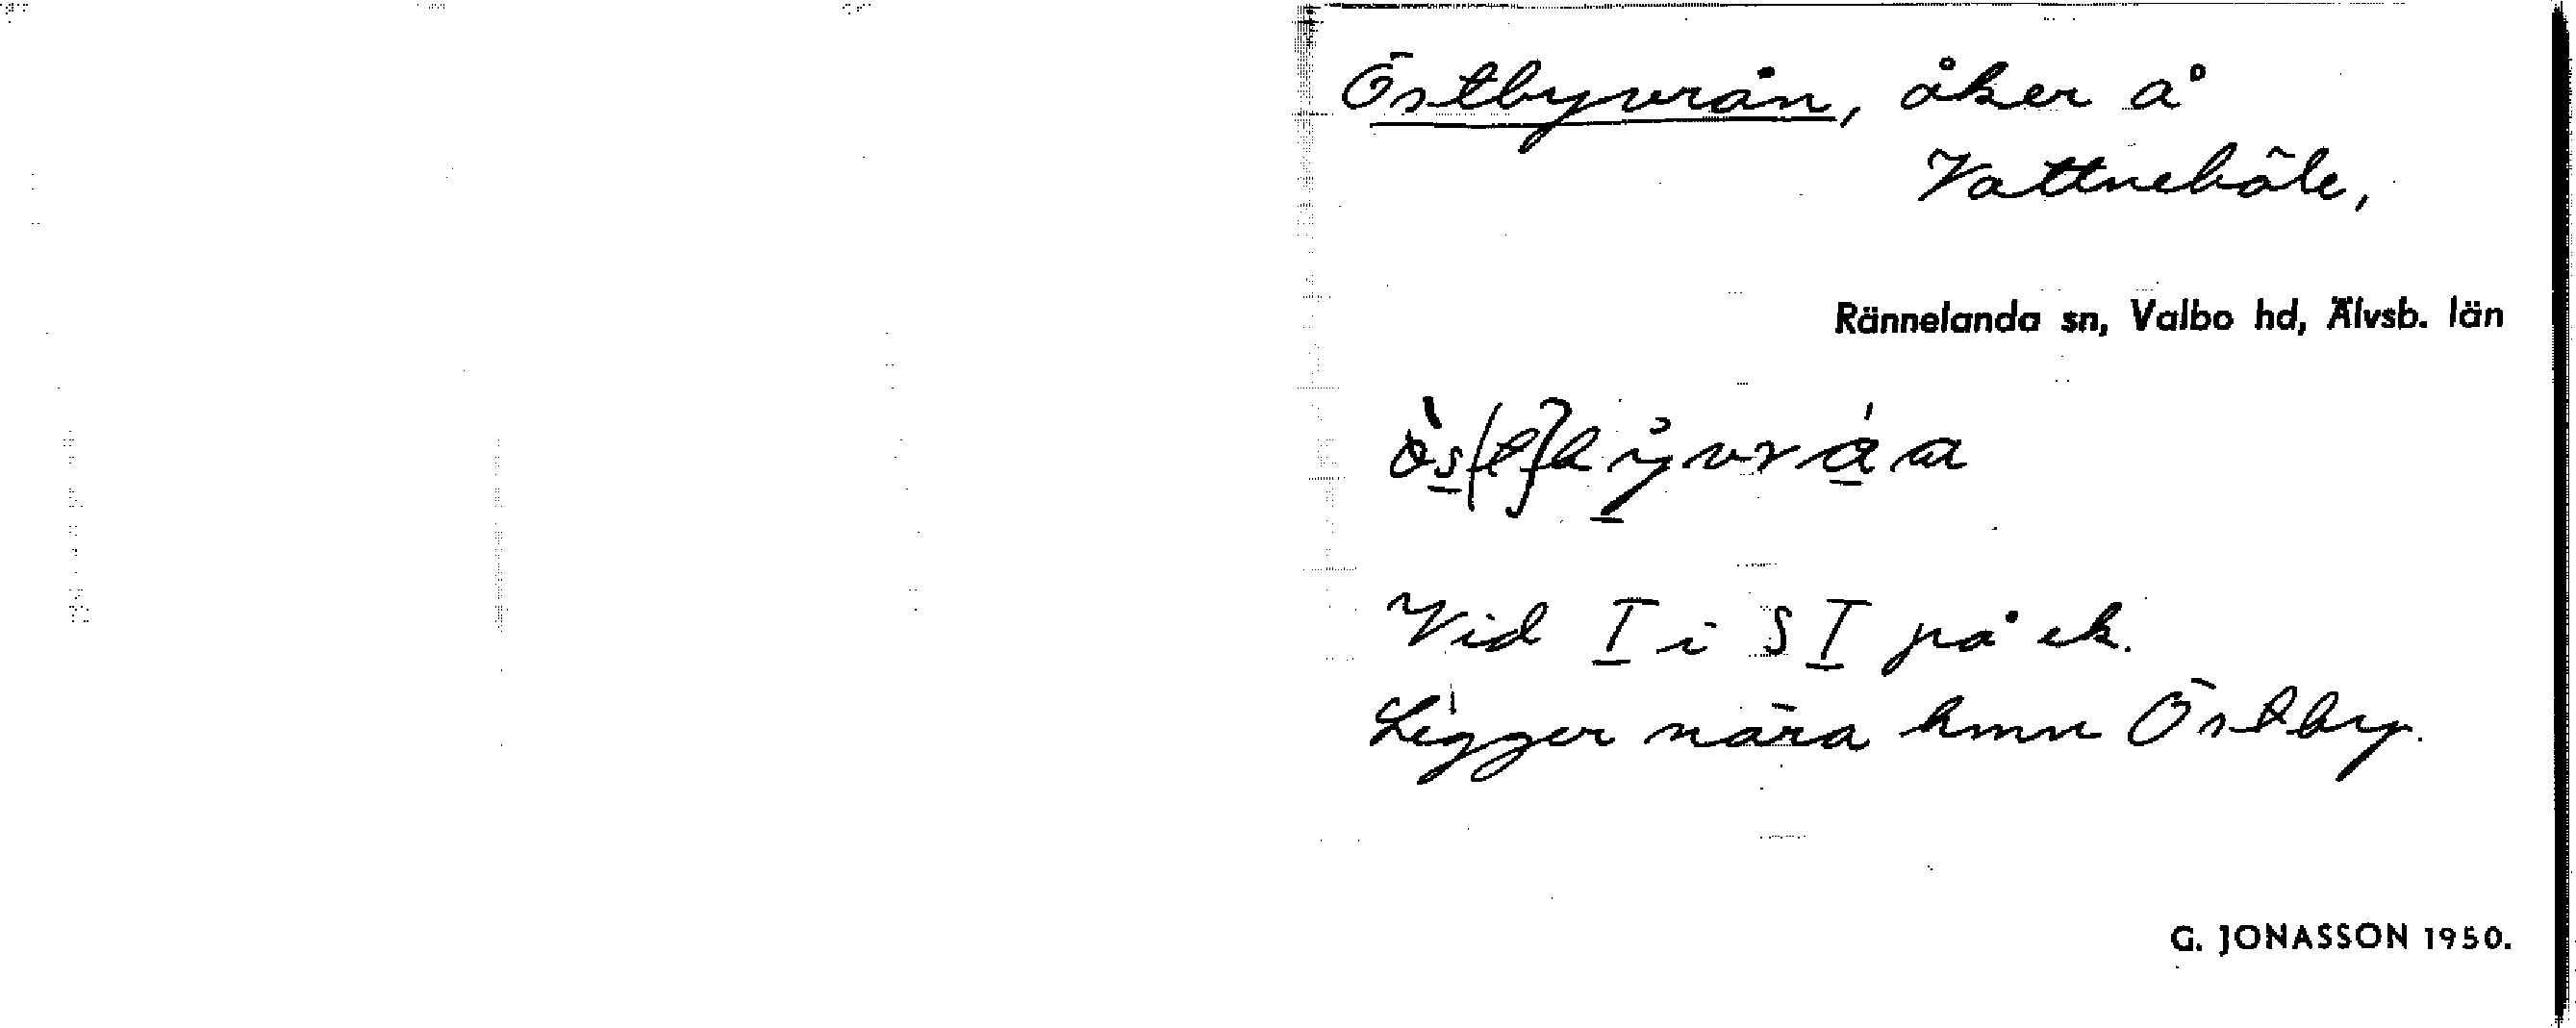 Östbyvrån, åker å
Vattneböle,
Rännelanda sn, Valbo hd, Älvsb. län
Vid I i S I på ek.
Ligger nära hmn Östby.
G. JONASSON 1950.